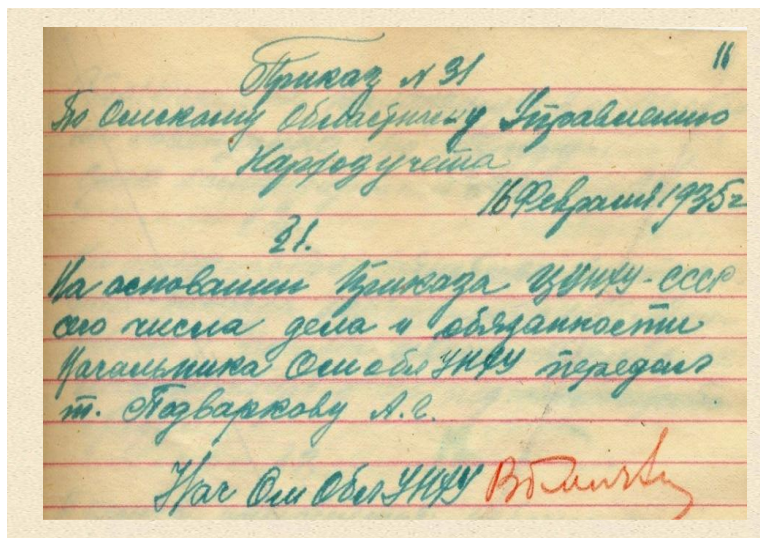 11
Приказ N 31
По Омскому Областному Управлению
Нархозучета
16 Февраля 1935 г
§ 1.
На основании Приказа ЦУНХУ-СССР
сего числа дела и обязанности
Начальника ОмоблУНХУ передал
т. Подваркову А.Г.
Нач ОмОблУНХУ